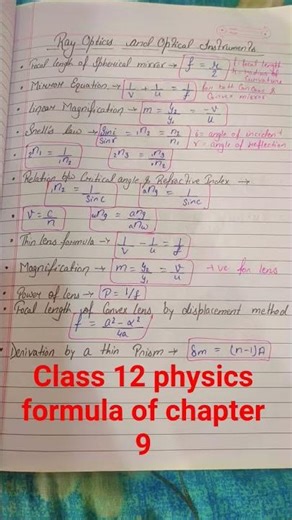 Ray Optics and Optical Instruments
• Focal length of Spherical mirror → f = r/2
• Mirror Equation → 1/v + 1/u = 1/f for both Concave & Convex mirror
• Linear Magnification → m = y₂/y₁ = -v/u
• Snell's law → sin i/sin r = ¹n₂ = n₂/n₁ i = angle of incident
r = angle of reflection
• Relation b/w Critical angle & Refractive Index →
• v = c/n
• Thin lens formula → 1/v - 1/u = 1/f
• Magnification → m = y₂/y₁ = v/u → +ve for lens
• Power of lens → P = 1/f
• Focal length of Convex lens by displacement method
f = a² - x²/4a
• Derivation by a thin Prism → δm = (n-1)A
Class 12 physics
formula of chapter
9